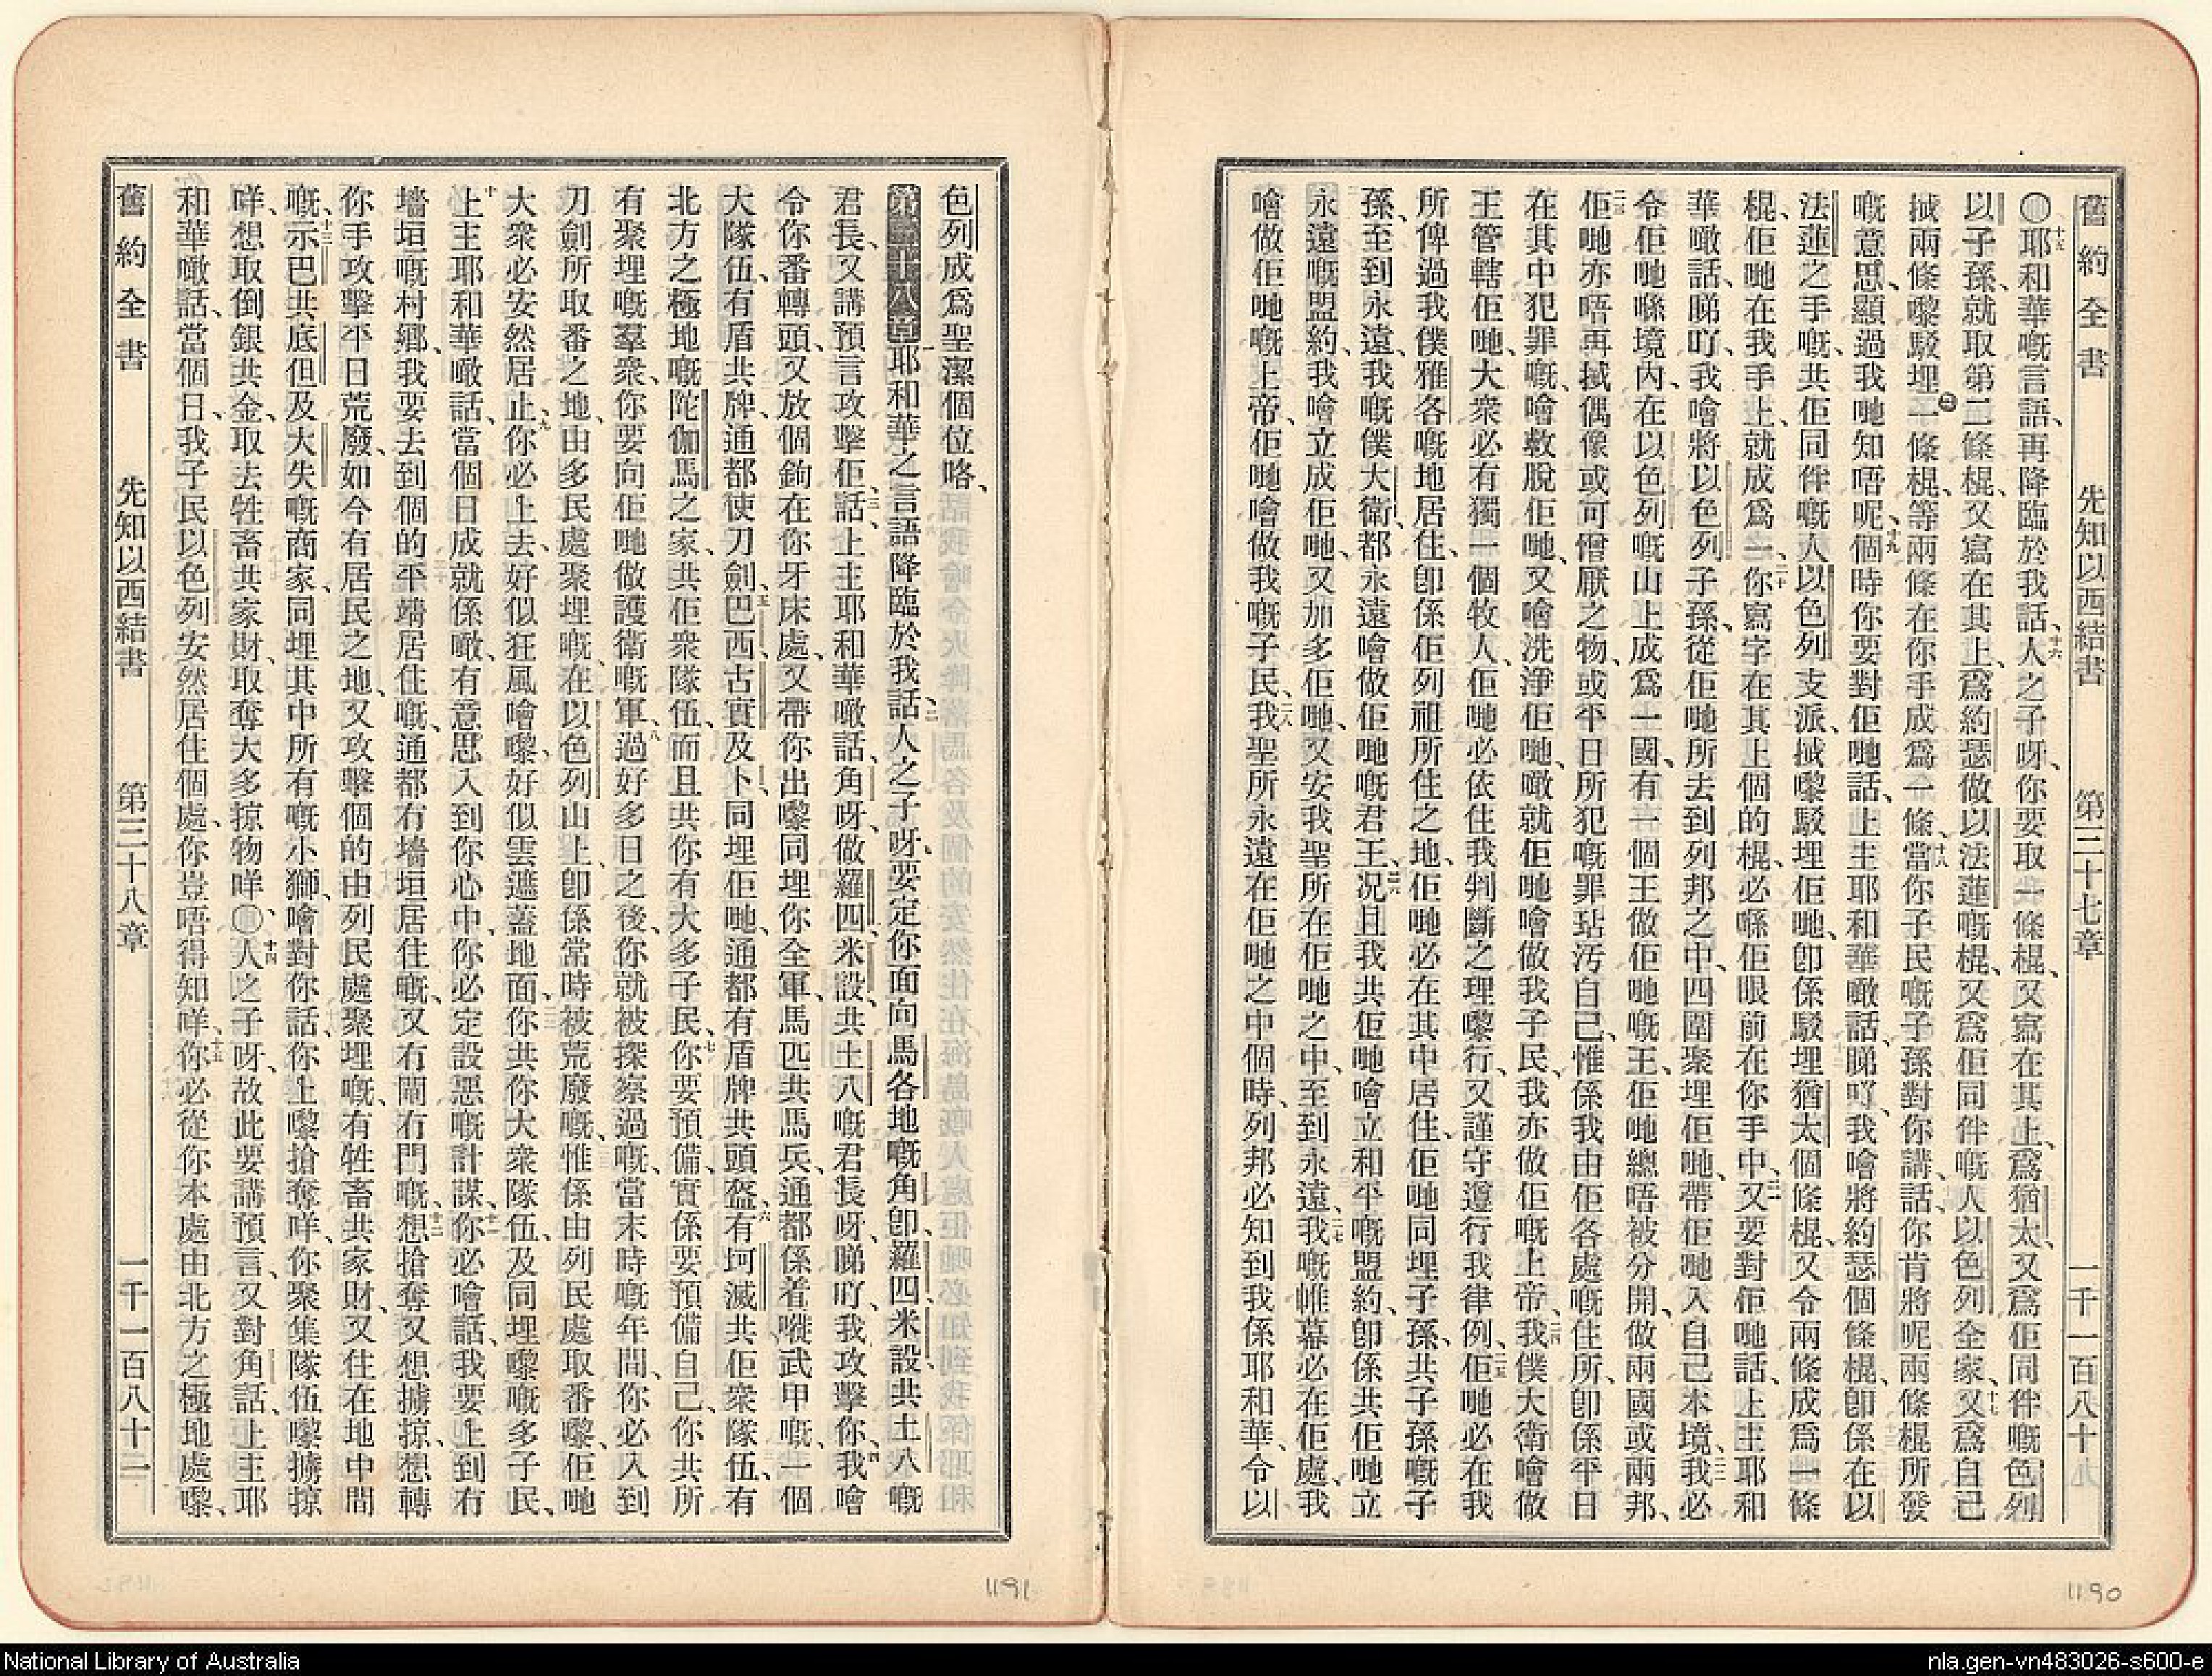 舊約全書　先知以西結書　第三十七章　一千一百八十九
○十五耶和華嘅言語、再降臨於我話、十六人之子呀、你要取一條棍、又寫在其上、爲猶太、又爲佢同伴嘅色列
以子孫、就取第二條棍、又寫在其上、爲約瑟做以法蓮嘅棍、又爲佢同伴嘅人以色列全家、十七又爲自己
搣兩條嚟駁埋一條棍、等兩條在你手成爲一條、十八當你子民嘅子孫對你講話、你肯將呢兩條棍所發
嘅意思、顯過我哋知唔呢、十九個時你要對佢哋話、上主耶和華噉話、睇吖、我噲將約瑟個條棍、卽係在以
法蓮之手嘅、共佢同伴嘅人以色列支派、搣嚟駁埋佢哋、卽係駁埋猶太個條棍、又令兩條成爲一條
棍、佢哋在我手上、就成爲一、二十你寫字在其上個的棍、必喺佢眼前在你手中、二一又要對佢哋話、上主耶和
華噉話、睇吖、我噲將以色列子孫、從佢哋所去到列邦之中、四圍聚埋佢哋、帶佢哋入自己本境、二二我必
令佢哋喺境內、在以色列嘅山上成爲一國、有一個王做佢哋嘅王、佢哋總唔被分開、做兩國或兩邦、
二三佢哋亦唔再搣偶像或可憎厭之物、或平日所犯嘅罪玷汚自己、惟係我由佢各處嘅住所、卽係平日
在其中犯罪嘅、噲救脫佢哋、又噲洗淨佢哋、噉就佢哋噲做我子民、我亦做佢嘅上帝、二四我僕大衛噲做
王管轄佢哋、大衆必有獨一個牧人、佢哋必依住我判斷之理嚟行、又謹守遵行我律例、二五佢哋必在我
所俾過我僕雅各嘅地居住、卽係佢列祖所住之地、佢哋必在其中居住、佢哋同埋子孫、共子孫嘅子
孫、至到永遠、我嘅僕大衛、都永遠噲做佢哋嘅君王、二六况且我共佢哋噲立和平嘅盟約、卽係共佢哋立
永遠嘅盟約、我噲立成佢哋、又加多佢哋、又安我聖所在佢哋之中、至到永遠、二七我嘅帷幕必在佢處、我
噲做佢哋嘅上帝、佢哋噲做我嘅子民、二八我聖所永遠在佢哋之中個時、列邦必知到我係耶和華、令以
1190
色列成爲聖潔個位咯、
第三十八章 一耶和華之言語降臨於我話、二人之子呀、要定你面向馬各地嘅角、卽羅四米設共土八嘅
君長、又講預言攻擊佢、三話、上主耶和華噉話、角呀、做羅四、米設、共土八嘅君長呀、睇吖、我攻擊你、四我噲
令你番轉頭、又放個鉤在你牙床處、又帶你出嚟同埋你全軍、馬匹共馬兵、通都係着嘥武甲嘅、一個
大隊伍、有盾共牌、通都使刀劍、五巴西古實及卜同埋佢哋、通都有盾牌共頭盔、六有坷滅共佢衆隊伍、有
北方之極地嘅陀伽馬之家、共佢衆隊伍、而且共你有大多子民、七你要預備、實係要預備自己、你共所
有聚埋嘅羣衆、你要向佢哋做護衛嘅軍、八過好多日之後、你就被探察過嘅、當末時嘅年間、你必入到
刀劍所取番之地、由多民處聚埋嘅、在以色列山上、卽係當時被荒廢嘅、惟係由列民處取番嚟、佢哋
大衆必安然居止、九你必上去、好似狂風噲嚟、好似雲遮蓋地面、你共你大衆隊伍、及同埋嚟嘅多子民、
十上主耶和華噉話、當個日成就係噉、有意思入到你心中、你必定設惡嘅計謀、十一你必噲話、我要上到冇
墻垣嘅村鄉、我要去到個的平靖居住嘅、通都冇墻垣居住嘅、又冇閘冇門嘅、十二想搶奪又想擄掠、想轉
你手攻擊平日荒廢、如今有居民之地、又攻擊個的由列民處聚埋嘅、有牲畜共家財、又住在地中間
嘅、十三示巴共底但及大失嘅商家、同埋其中所有嘅小獅、噲對你話、你上嚟搶奪咩、你聚集隊伍嚟擄掠
咩、想取倒銀共金、取去牲畜共家財、取奪大多掠物咩、○十四人之子呀、故此要講預言、又對角話、上主耶
和華噉話、當個日、我子民以色列安然居住個處、你豈唔得知咩、十五你必從你本處由北方之極地處嚟、
舊約全書　先知以西結書　第三十八章　一千一百八十二
1191
National Library of Australia
nla.gen-vn483026-s600-e